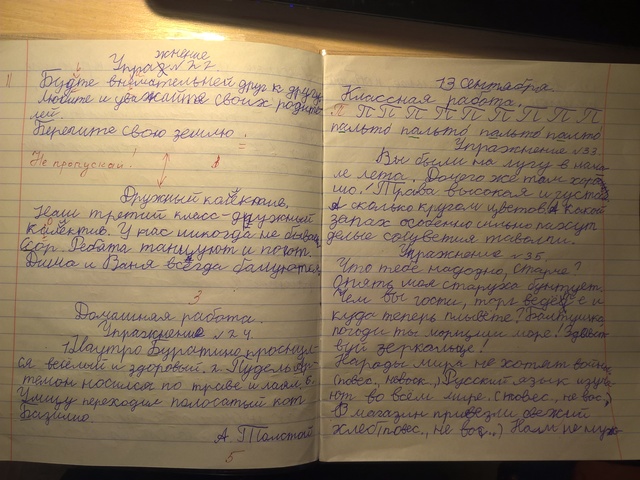 Упражнение №22
Будте внимательней друг к другу,
любите и уважайте своих родите
лей.
Берегите свою землю.
Не пропускай!
Дружный колектив.
Наш третий класс - дружный
колектив. У нас никогда не бывает
ссор. Ребята танцуют и поют.
Дима и Ваня всегда балуются
3
Домашняя работа.
Упражнение №24.
1. Наутро Буратино проснул-
ся весёлый и здоровый. 2. Пудель Ар-
темон носился по траве и лаял. 6.
Улицу переходил полосатый кот
Базилио.
А Толстой
5
13 сентября.
Классная работа.
П П П П П П П П П П
пальто пальто пальто пальто
Упражнение №33.
Вы были на лугу в нача
ле лета. До чего же там хоро
шо! Трава высокая и густая
А сколько кругом цветов! А какой
запах особенно сильно пахнут
белые соцветия таволги.
Упражнение №35.
Что тебе надобно, старче?
Опять моя старуха бунтует.
Чем вы гости, торг ведёте и
куда теперь плывете?
погоди ты морщишь море! Здравст
вуй зеркальце!
Народы мира не хотят войны
(повес., невоск.) Русский язык изуча
ют во всём мире. (повес., не вос.)
В магазин привезли свежий
хлеб (повес., не вос..) Нам не нуж